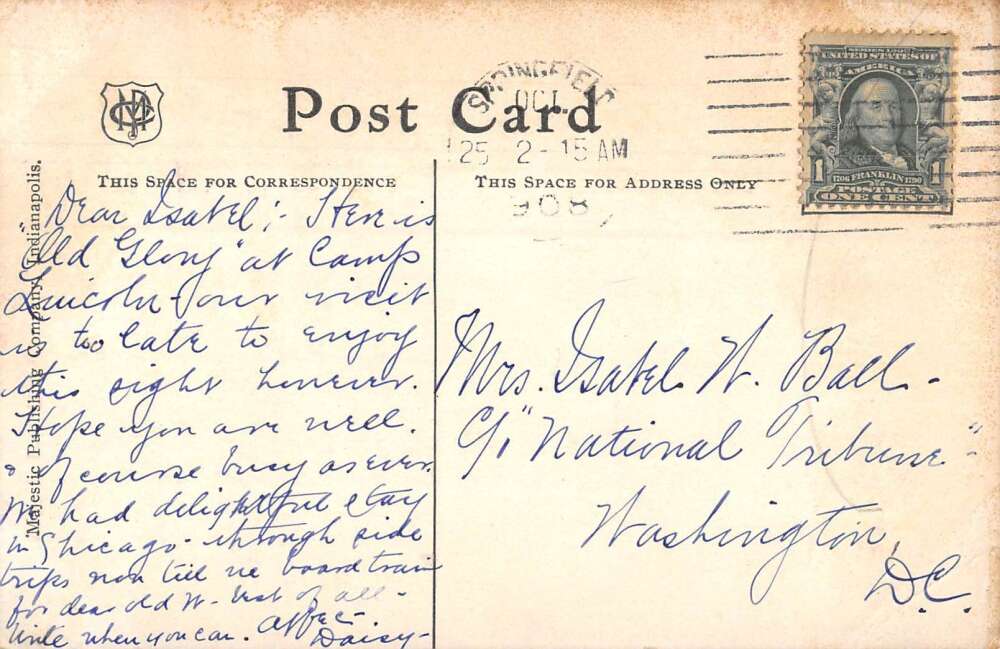 Post Card
SPRINGFIELD
OCT
25 2-15 AM
908
SERIES 1902
UNITED STATES OF
AMERICA
1 1706 FRANKLIN 1790 1
POSTAGE
ONE CENT
THIS SPACE FOR CORRESPONDENCE
THIS SPACE FOR ADDRESS ONLY
Majestic Publishing Company, Indianapolis.
Dear Isabel;- Here is
"Old Glory" at Camp
Lincoln - our visit
is too late to enjoy
this sight however.
Hope you are well.
& of course busy as ever.
We had delightful stay
in Chicago - through side
trips now till we board train
for dear old W- best of all-
Write when you can. Affec-
Daisy-
Mrs. Isabel W. Ball-
C/o "National Tribune"-
Washington,
D.C.